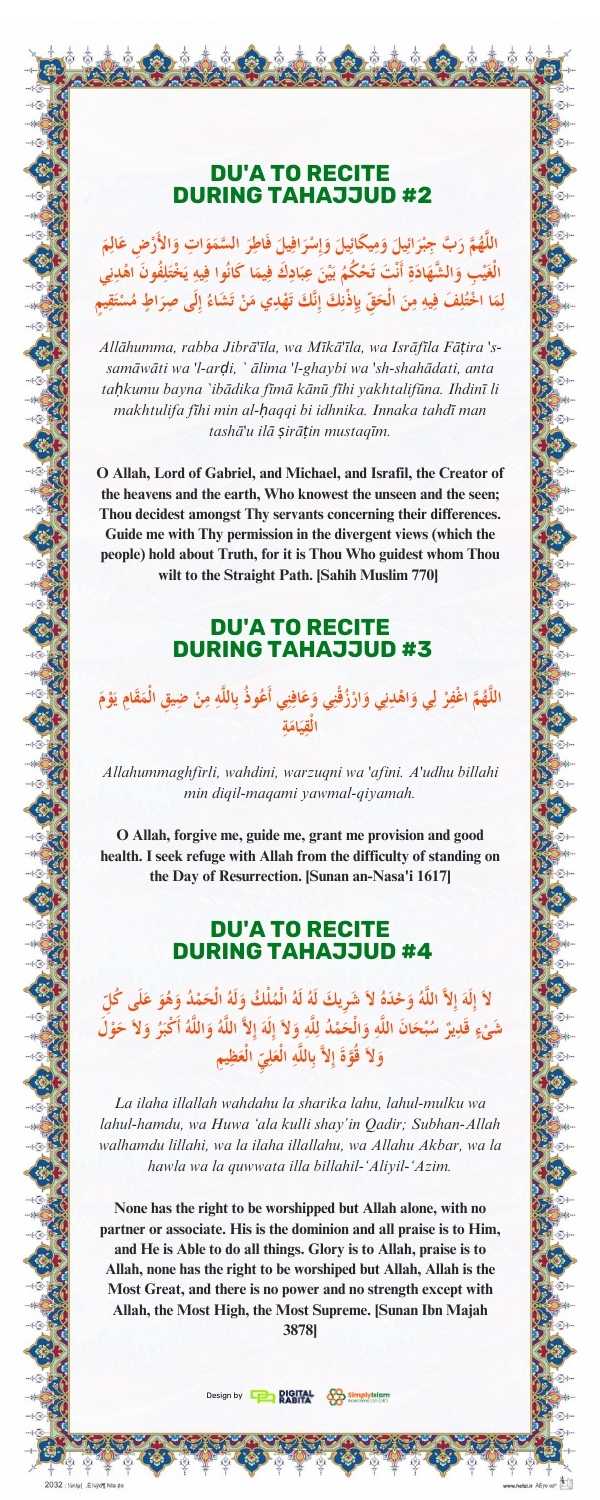 DU'A TO RECITE
DURING TAHAJJUD #2
اللَّهُمَّ رَبَّ جِبْرَائِيلَ وَمِيكَائِيلَ وَإِسْرَافِيلَ فَاطِرَ السَّمَوَاتِ وَالأَرْضِ عَالِمَ
الْغَيْبِ وَالشَّهَادَةِ أَنْتَ تَحْكُمُ بَيْنَ عِبَادِكَ فِيمَا كَانُوا فِيهِ يَخْتَلِفُونَ اهْدِنِي
لِمَا اخْتُلِفَ فِيهِ مِنَ الْحَقِّ بِإِذْنِكَ إِنَّكَ تَهْدِي مَنْ تَشَاءُ إِلَى صِرَاطٍ مُسْتَقِيمٍ
Allāhumma, rabba Jibrā'īla, wa Mīkā'īla, wa Isrāfīla Fāṭira 's-
samāwāti wa 'l-arḍi, ` ālima 'l-ghaybi wa 'sh-shahādati, anta
taḥkumu bayna `ibādika fīmā kānū fīhi yakhtalifūna. Ihdinī li
makhtulifa fīhi min al-ḥaqqi bi idhnika. Innaka tahdī man
tashā'u ilā ṣirāṭin mustaqīm.
O Allah, Lord of Gabriel, and Michael, and Israfil, the Creator of
the heavens and the earth, Who knowest the unseen and the seen;
Thou decidest amongst Thy servants concerning their differences.
Guide me with Thy permission in the divergent views (which the
people) hold about Truth, for it is Thou Who guidest whom Thou
wilt to the Straight Path. [Sahih Muslim 770]
DU'A TO RECITE
DURING TAHAJJUD #3
اللَّهُمَّ اغْفِرْ لِي وَاهْدِنِي وَارْزُقْنِي وَعَافِنِي أَعُوذُ بِاللَّهِ مِنْ ضِيقِ الْمَقَامِ يَوْمَ
الْقِيَامَةِ
Allahummaghfirli, wahdini, warzuqni wa 'afini. A'udhu billahi
min diqil-maqami yawmal-qiyamah.
O Allah, forgive me, guide me, grant me provision and good
health. I seek refuge with Allah from the difficulty of standing on
the Day of Resurrection. [Sunan an-Nasa'i 1617]
DU'A TO RECITE
DURING TAHAJJUD #4
لاَ إِلَهَ إِلاَّ اللَّهُ وَحْدَهُ لاَ شَرِيكَ لَهُ لَهُ الْمُلْكُ وَلَهُ الْحَمْدُ وَهُوَ عَلَى كُلِّ
شَىْءٍ قَدِيرٌ سُبْحَانَ اللَّهِ وَالْحَمْدُ لِلَّهِ وَلاَ إِلَهَ إِلاَّ اللَّهُ وَاللَّهُ أَكْبَرُ وَلاَ حَوْلَ
وَلاَ قُوَّةَ إِلاَّ بِاللَّهِ الْعَلِيِّ الْعَظِيمِ
La ilaha illallah wahdahu la sharika lahu, lahul-mulku wa
lahul-hamdu, wa Huwa ‘ala kulli shay’in Qadir; Subhan-Allah
walhamdu lillahi, wa la ilaha illallahu, wa Allahu Akbar, wa la
hawla wa la quwwata illa billahil-‘Aliyil-‘Azim.
None has the right to be worshipped but Allah alone, with no
partner or associate. His is the dominion and all praise is to Him,
and He is Able to do all things. Glory is to Allah, praise is to
Allah, none has the right to be worshiped but Allah, Allah is the
Most Great, and there is no power and no strength except with
Allah, the Most High, the Most Supreme. [Sunan Ibn Majah
3878]
Design by DIGITAL RABITA SimplyIslam
2032